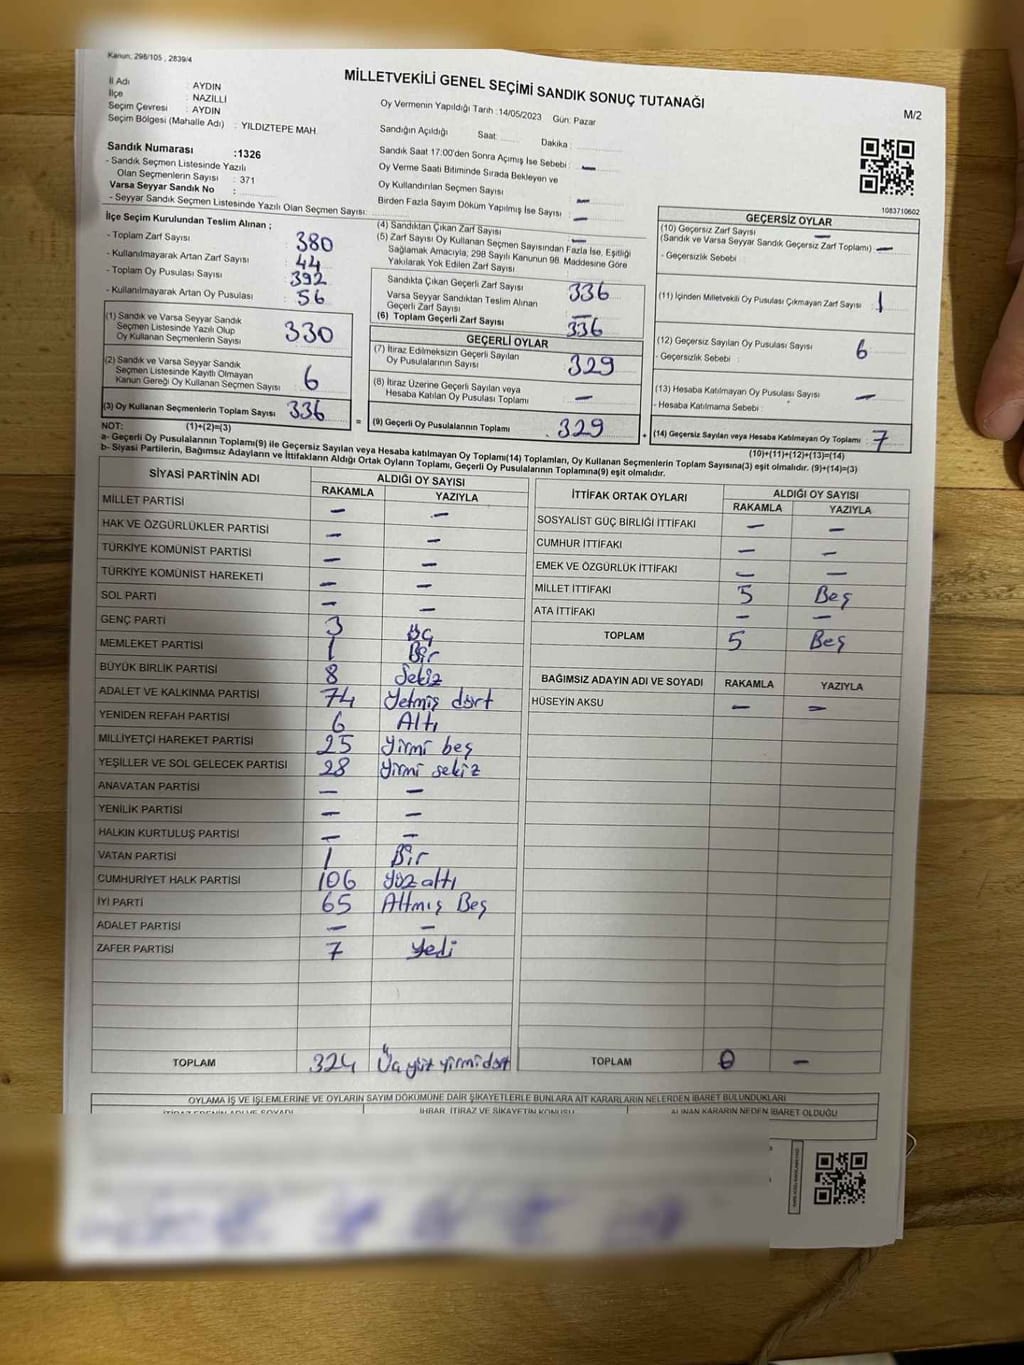 Kanun, 298/105 , 2839/4
MİLLETVEKİLİ GENEL SEÇİMİ SANDIK SONUÇ TUTANAĞI
M/2
İl Adı : AYDIN
İlçe : NAZİLLİ
Seçim Çevresi : AYDIN
Seçim Bölgesi (Mahalle Adı) : YILDIZTEPE MAH.
Sandık Numarası :1326
- Sandık Seçmen Listesinde Yazılı
Olan Seçmenlerin Sayısı : 371
Varsa Seyyar Sandık No :
- Seyyar Sandık Seçmen Listesinde Yazılı Olan Seçmen Sayısı:
Oy Vermenin Yapıldığı Tarih :14/05/2023 Gün: Pazar
Sandığın Açıldığı Saat: Dakika :
Sandık Saat 17:00'den Sonra Açımış İse Sebebi : –
Oy Verme Saati Bitiminde Sırada Bekleyen ve
Oy Kullandırılan Seçmen Sayısı –
Birden Fazla Sayım Döküm Yapılmış İse Sayısı : –
1083710602
İlçe Seçim Kurulundan Teslim Alınan ;
- Toplam Zarf Sayısı : 380
- Kullanılmayarak Artan Zarf Sayısı : 44
- Toplam Oy Pusulası Sayısı : 392
- Kullanılmayarak Artan Oy Pusulası : 56
(1) Sandık ve Varsa Seyyar Sandık
Seçmen Listesinde Yazılı Olup
Oy Kullanan Seçmenlerin Sayısı 330
(2) Sandık ve Varsa Seyyar Sandık
Seçmen Listesinde Kayıtlı Olmayan
Kanun Gereği Oy Kullanan Seçmen Sayısı 6
(3) Oy Kullanan Seçmenlerin Toplam Sayısı 336
(4) Sandıktan Çıkan Zarf Sayısı –
(5) Zarf Sayısı Oy Kullanan Seçmen Sayısından Fazla İse, Eşitliği
Sağlamak Amacıyla, 298 Sayılı Kanunun 98. Maddesine Göre
Yakılarak Yok Edilen Zarf Sayısı
Sandıkta Çıkan Geçerli Zarf Sayısı 336
Varsa Seyyar Sandıktan Teslim Alınan
Geçerli Zarf Sayısı –
(6) Toplam Geçerli Zarf Sayısı 336
GEÇERLİ OYLAR
(7) İtiraz Edilmeksizin Geçerli Sayılan
Oy Pusulalarının Sayısı 329
(8) İtiraz Üzerine Geçerli Sayılan veya
Hesaba Katılan Oy Pusulası Toplamı –
= (9) Geçerli Oy Pusulalarının Toplamı 329
GEÇERSİZ OYLAR
(10) Geçersiz Zarf Sayısı –
(Sandık ve Varsa Seyyar Sandık Geçersiz Zarf Toplamı) –
- Geçersizlik Sebebi :
(11) İçinden Milletvekili Oy Pusulası Çıkmayan Zarf Sayısı 1
(12) Geçersiz Sayılan Oy Pusulası Sayısı 6
- Geçersizlik Sebebi :
(13) Hesaba Katılmayan Oy Pusulası Sayısı –
- Hesaba Katılmama Sebebi :
+ (14) Geçersiz Sayılan veya Hesaba Katılmayan Oy Toplamı : 7
NOT: (1)+(2)=(3)
(10)+(11)+(12)+(13)=(14)
a- Geçerli Oy Pusulalarının Toplamı(9) ile Geçersiz Sayılan veya Hesaba katılmayan Oy Toplamı(14) Toplamları, Oy Kullanan Seçmenlerin Toplam Sayısına(3) eşit olmalıdır. (9)+(14)=(3)
b- Siyasi Partilerin, Bağımsız Adayların ve İttifakların Aldığı Ortak Oyların Toplamı, Geçerli Oy Pusulalarının Toplamına(9) eşit olmalıdır.
SİYASİ PARTİNİN ADI ALDIĞI OY SAYISI
RAKAMLA YAZIYLA
MİLLET PARTİSİ – –
HAK VE ÖZGÜRLÜKLER PARTİSİ – –
TÜRKİYE KOMÜNİST PARTİSİ – –
TÜRKİYE KOMÜNİST HAREKETİ – –
SOL PARTİ – –
GENÇ PARTİ 3 Üç
MEMLEKET PARTİSİ 1 Bir
BÜYÜK BİRLİK PARTİSİ 8 Sekiz
ADALET VE KALKINMA PARTİSİ 74 Yetmiş dört
YENİDEN REFAH PARTİSİ 6 Altı
MİLLİYETÇİ HAREKET PARTİSİ 25 Yirmi beş
YEŞİLLER VE SOL GELECEK PARTİSİ 28 Yirmi sekiz
ANAVATAN PARTİSİ – –
YENİLİK PARTİSİ – –
HALKIN KURTULUŞ PARTİSİ – –
VATAN PARTİSİ 1 Bir
CUMHURİYET HALK PARTİSİ 106 Yüz altı
İYİ PARTİ 65 Altmış Beş
ADALET PARTİSİ – –
ZAFER PARTİSİ 7 Yedi
TOPLAM 324 Üç yüz yirmi dört
İTTİFAK ORTAK OYLARI ALDIĞI OY SAYISI
RAKAMLA YAZIYLA
SOSYALİST GÜÇ BİRLİĞİ İTTİFAKI – –
CUMHUR İTTİFAKI – –
EMEK VE ÖZGÜRLÜK İTTİFAKI – –
MİLLET İTTİFAKI 5 Beş
ATA İTTİFAKI – –
TOPLAM 5 Beş
BAĞIMSIZ ADAYIN ADI VE SOYADI RAKAMLA YAZIYLA
HÜSEYİN AKSU – –
TOPLAM 0 –
OYLAMA İŞ VE İŞLEMLERİNE VE OYLARIN SAYIM DÖKÜMÜNE DAİR ŞİKAYETLERLE BUNLARA AİT KARARLARIN NELERDEN İBARET BULUNDUKLARI
İTİRAZ EDENİN ADI VE SOYADI İHBAR, İTİRAZ VE ŞİKAYETİN KONUSU ALINAN KARARIN NEDEN İBARET OLDUĞU